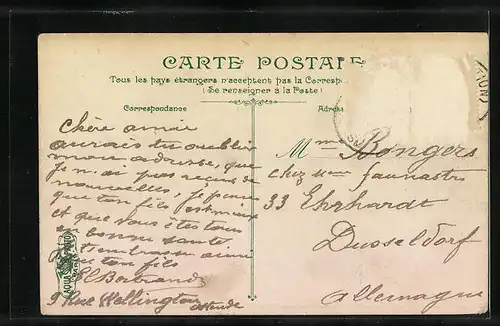 CARTE POSTALE
Tous les pays étrangers n'acceptent pas la Corresp
(Se renseigner à la Poste)
Correspondance
Adres
Chère amie
aurais tu oublier
mon adresse, que
je n'ai pas recus de
nouvelles, je pense
que ton fils est mieux
et que vous êtes tous
en bonne santé
Je t'embrasse ainsi
que ton fils
Bertrand
9 Rue Wellington
Ostende
Mme Bongers
chez
33 Ehrhardt
Dusseldorf
Allemagne